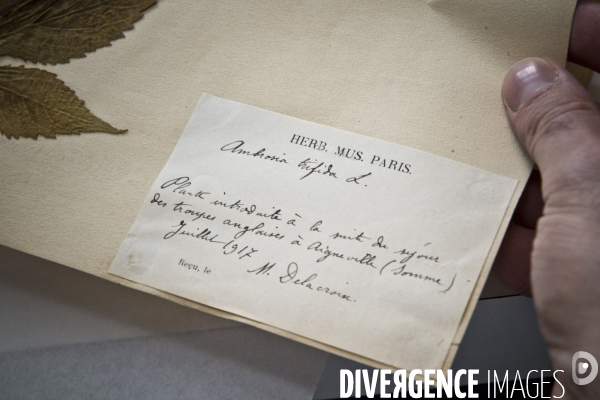 HERB. MUS. PARIS.
Ambrosia trifida L.
Plante introduite à la suite du séjour
des troupes anglaises à Aigneville (Somme)
Juillet 1917
M. Delacroix
Reçu, le
DIVERGENCE IMAGES